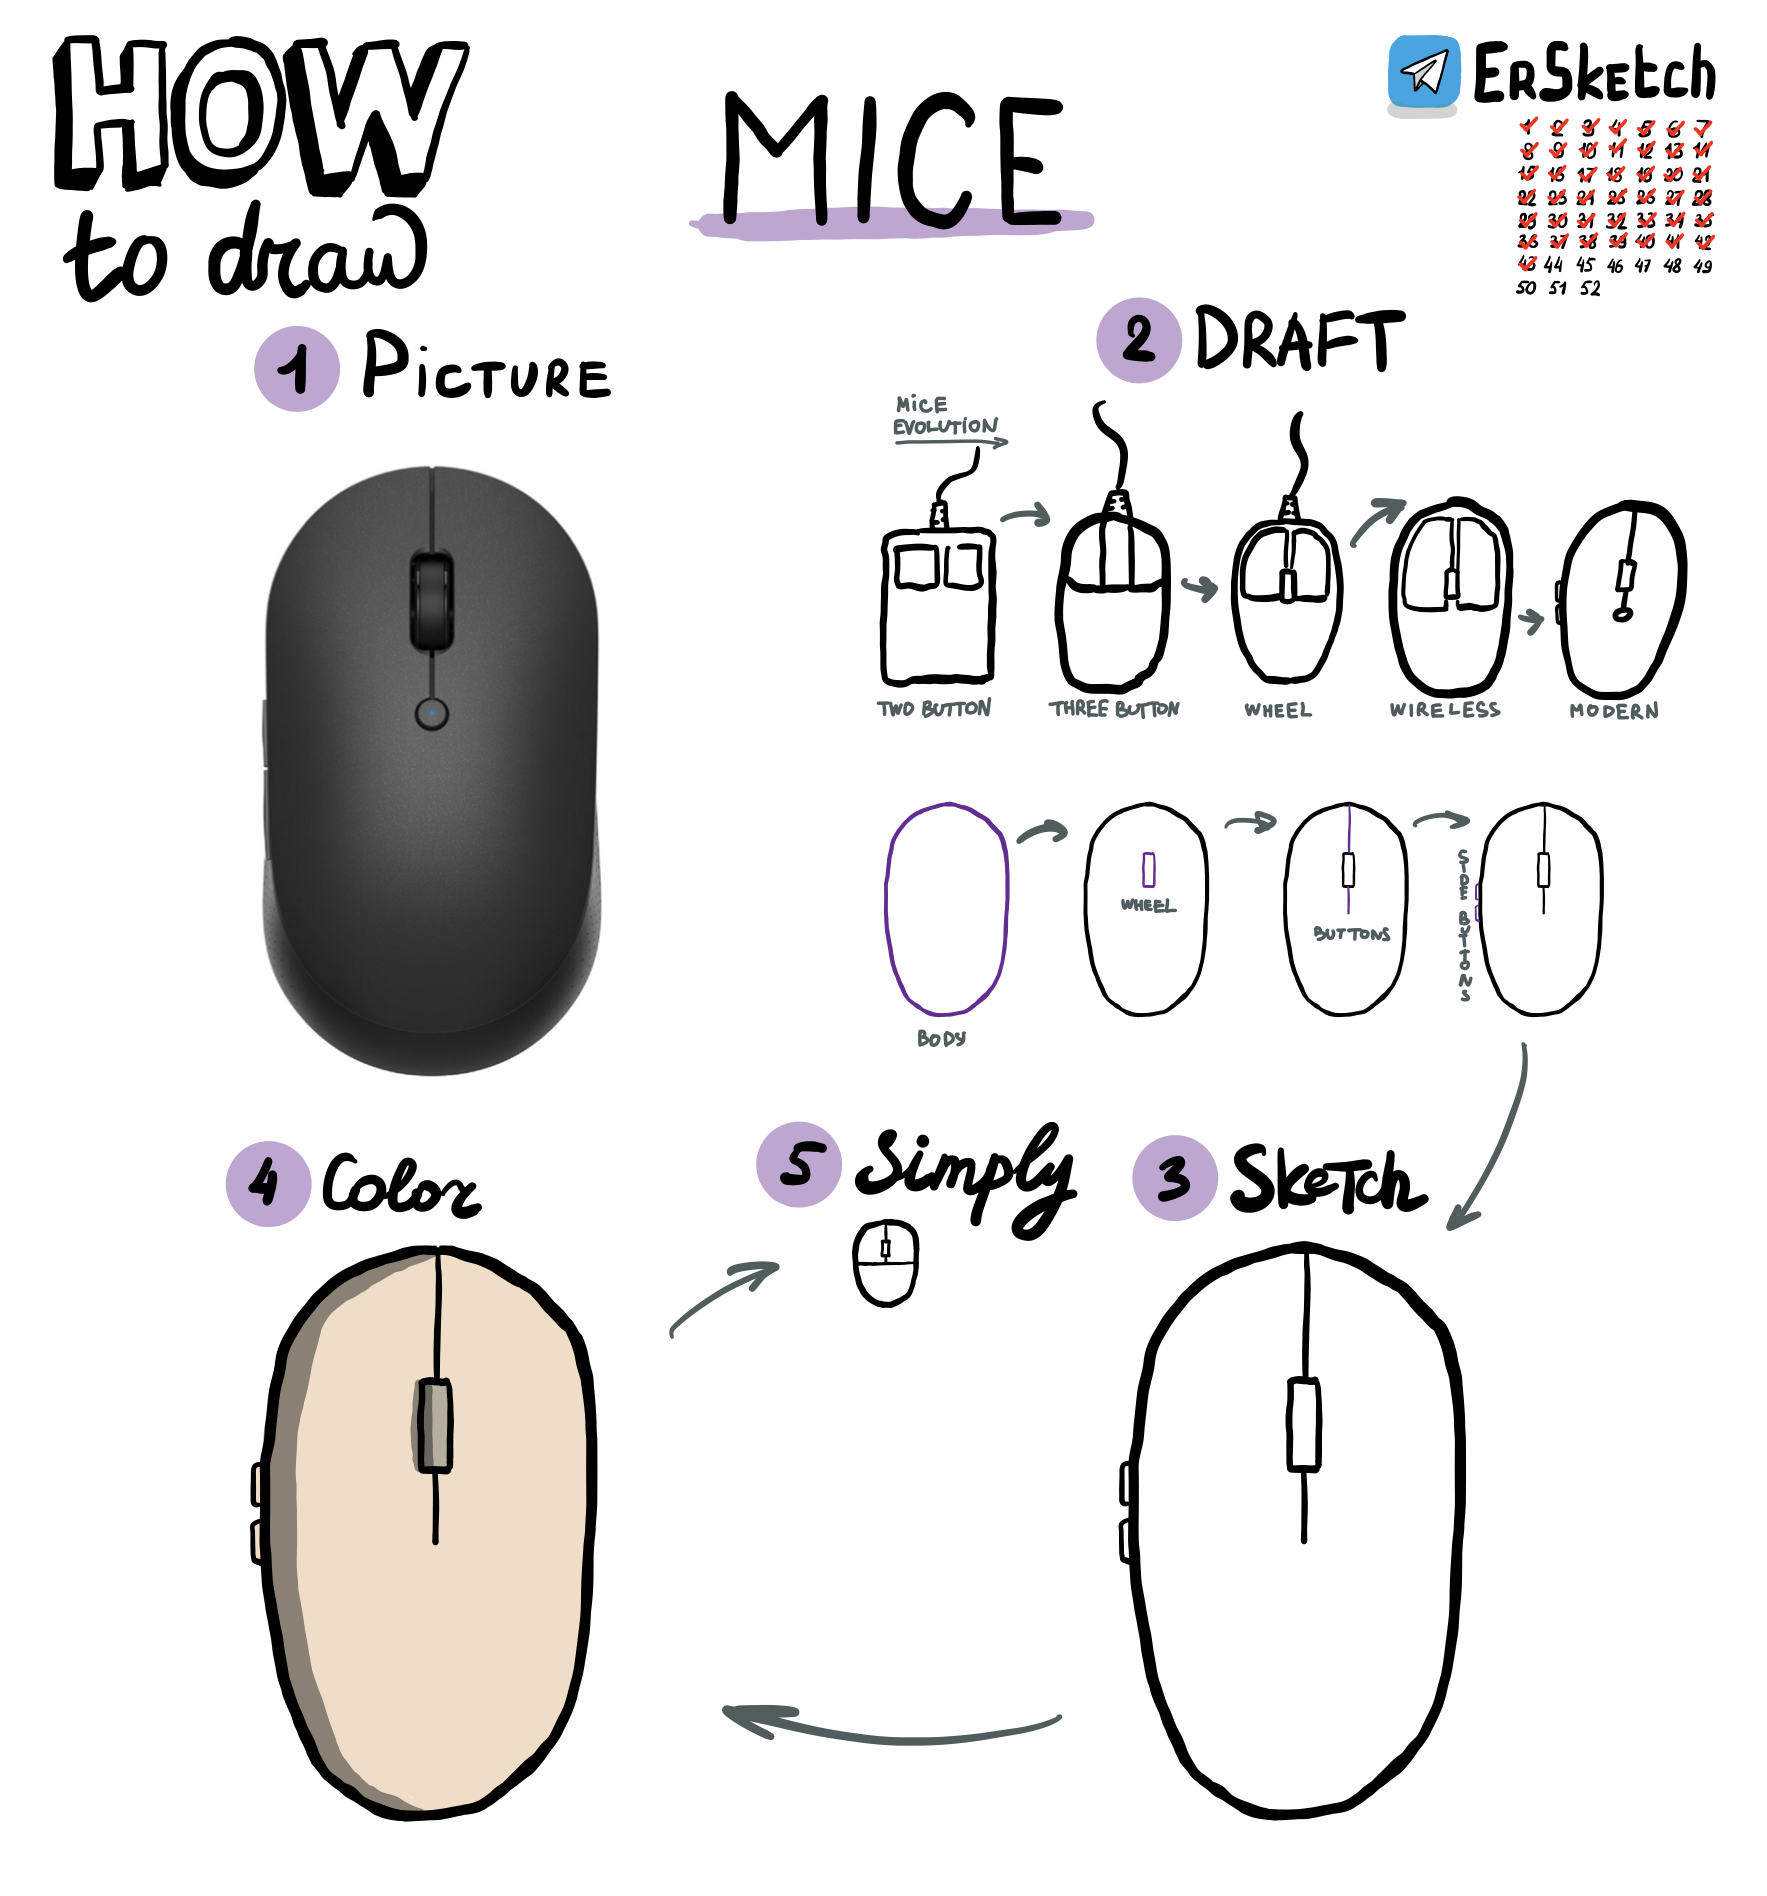 HOW
to draw
MICE
ErSketch
1 2 3 4 5 6 7
8 9 10 11 12 13 14
15 16 17 18 19 20 21
22 23 24 25 26 27 28
29 30 31 32 33 34 35
36 37 38 39 40 41 42
43 44 45 46 47 48 49
50 51 52
1 Picture
2 DRAFT
MiCE
EVOLUTION
TWO BUTTON
THREE BUTTON
WHEEL
WIRELESS
MODERN
BODY
WHEEL
BUTTONS
SIDE BUTTONS
3 Sketch
4 Color
5 Simply